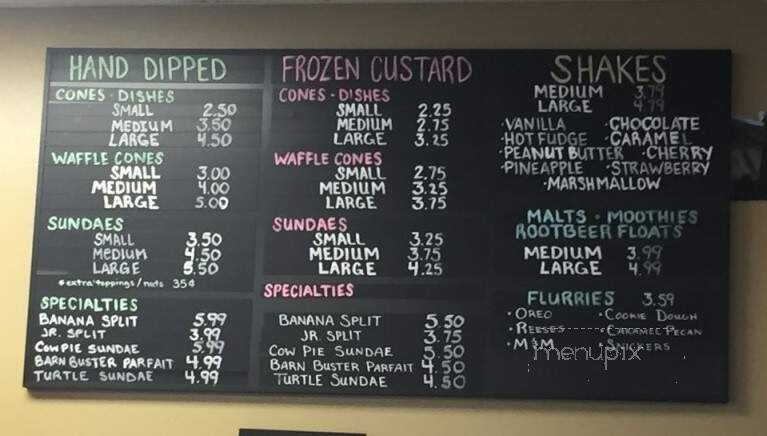 HAND DIPPED
CONES · DISHES
SMALL 2.50
MEDIUM 3.50
LARGE 4.50
WAFFLE CONES
SMALL 3.00
MEDIUM 4.00
LARGE 5.00
SUNDAES
SMALL 3.50
MEDIUM 4.50
LARGE 5.50
*extra toppings/nuts 35¢
SPECIALTIES
BANANA SPLIT 5.99
JR. SPLIT 3.99
COW PIE SUNDAE 5.99
BARN BUSTER PARFAIT 4.99
TURTLE SUNDAE 4.99
FROZEN CUSTARD
CONES · DISHES
SMALL 2.25
MEDIUM 2.75
LARGE 3.25
WAFFLE CONES
SMALL 2.75
MEDIUM 3.25
LARGE 3.75
SUNDAES
SMALL 3.25
MEDIUM 3.75
LARGE 4.25
SPECIALTIES
BANANA SPLIT 5.50
JR. SPLIT 3.75
COW PIE SUNDAE 5.50
BARN BUSTER PARFAIT 4.50
TURTLE SUNDAE 4.50
SHAKES
MEDIUM 3.79
LARGE 4.79
·VANILLA ·CHOCOLATE
·HOT FUDGE ·CARAMEL
·PEANUT BUTTER ·CHERRY
·PINEAPPLE ·STRAWBERRY
·MARSHMALLOW
MALTS · MOOTHIES
ROOTBEER FLOATS
MEDIUM 3.99
LARGE 4.99
FLURRIES 3.59
·OREO ·COOKIE DOUGH
·REESES ·CARAMEL PECAN
·M&M ·SNICKERS
menupix